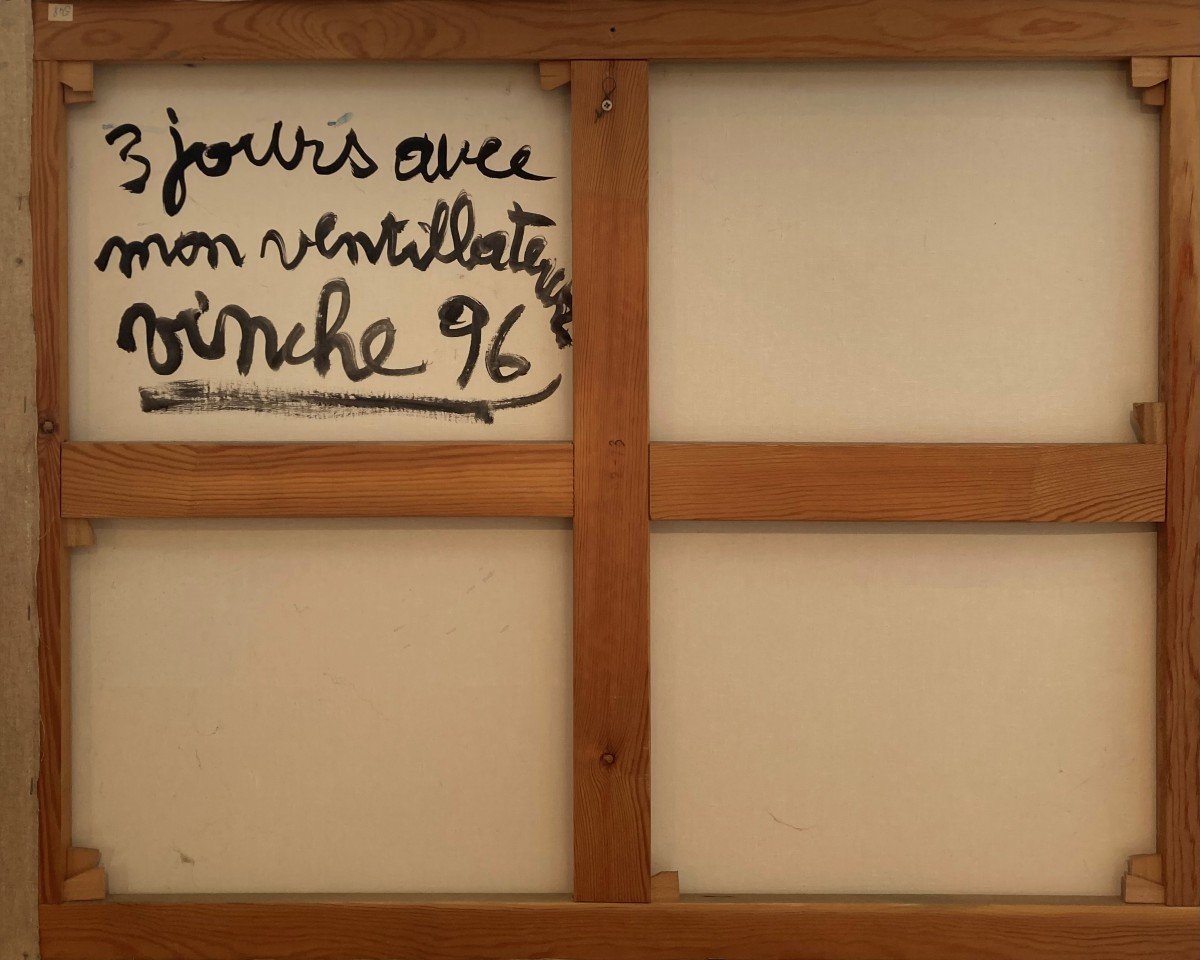 3 jours avec
mon ventillateur
vinche 96